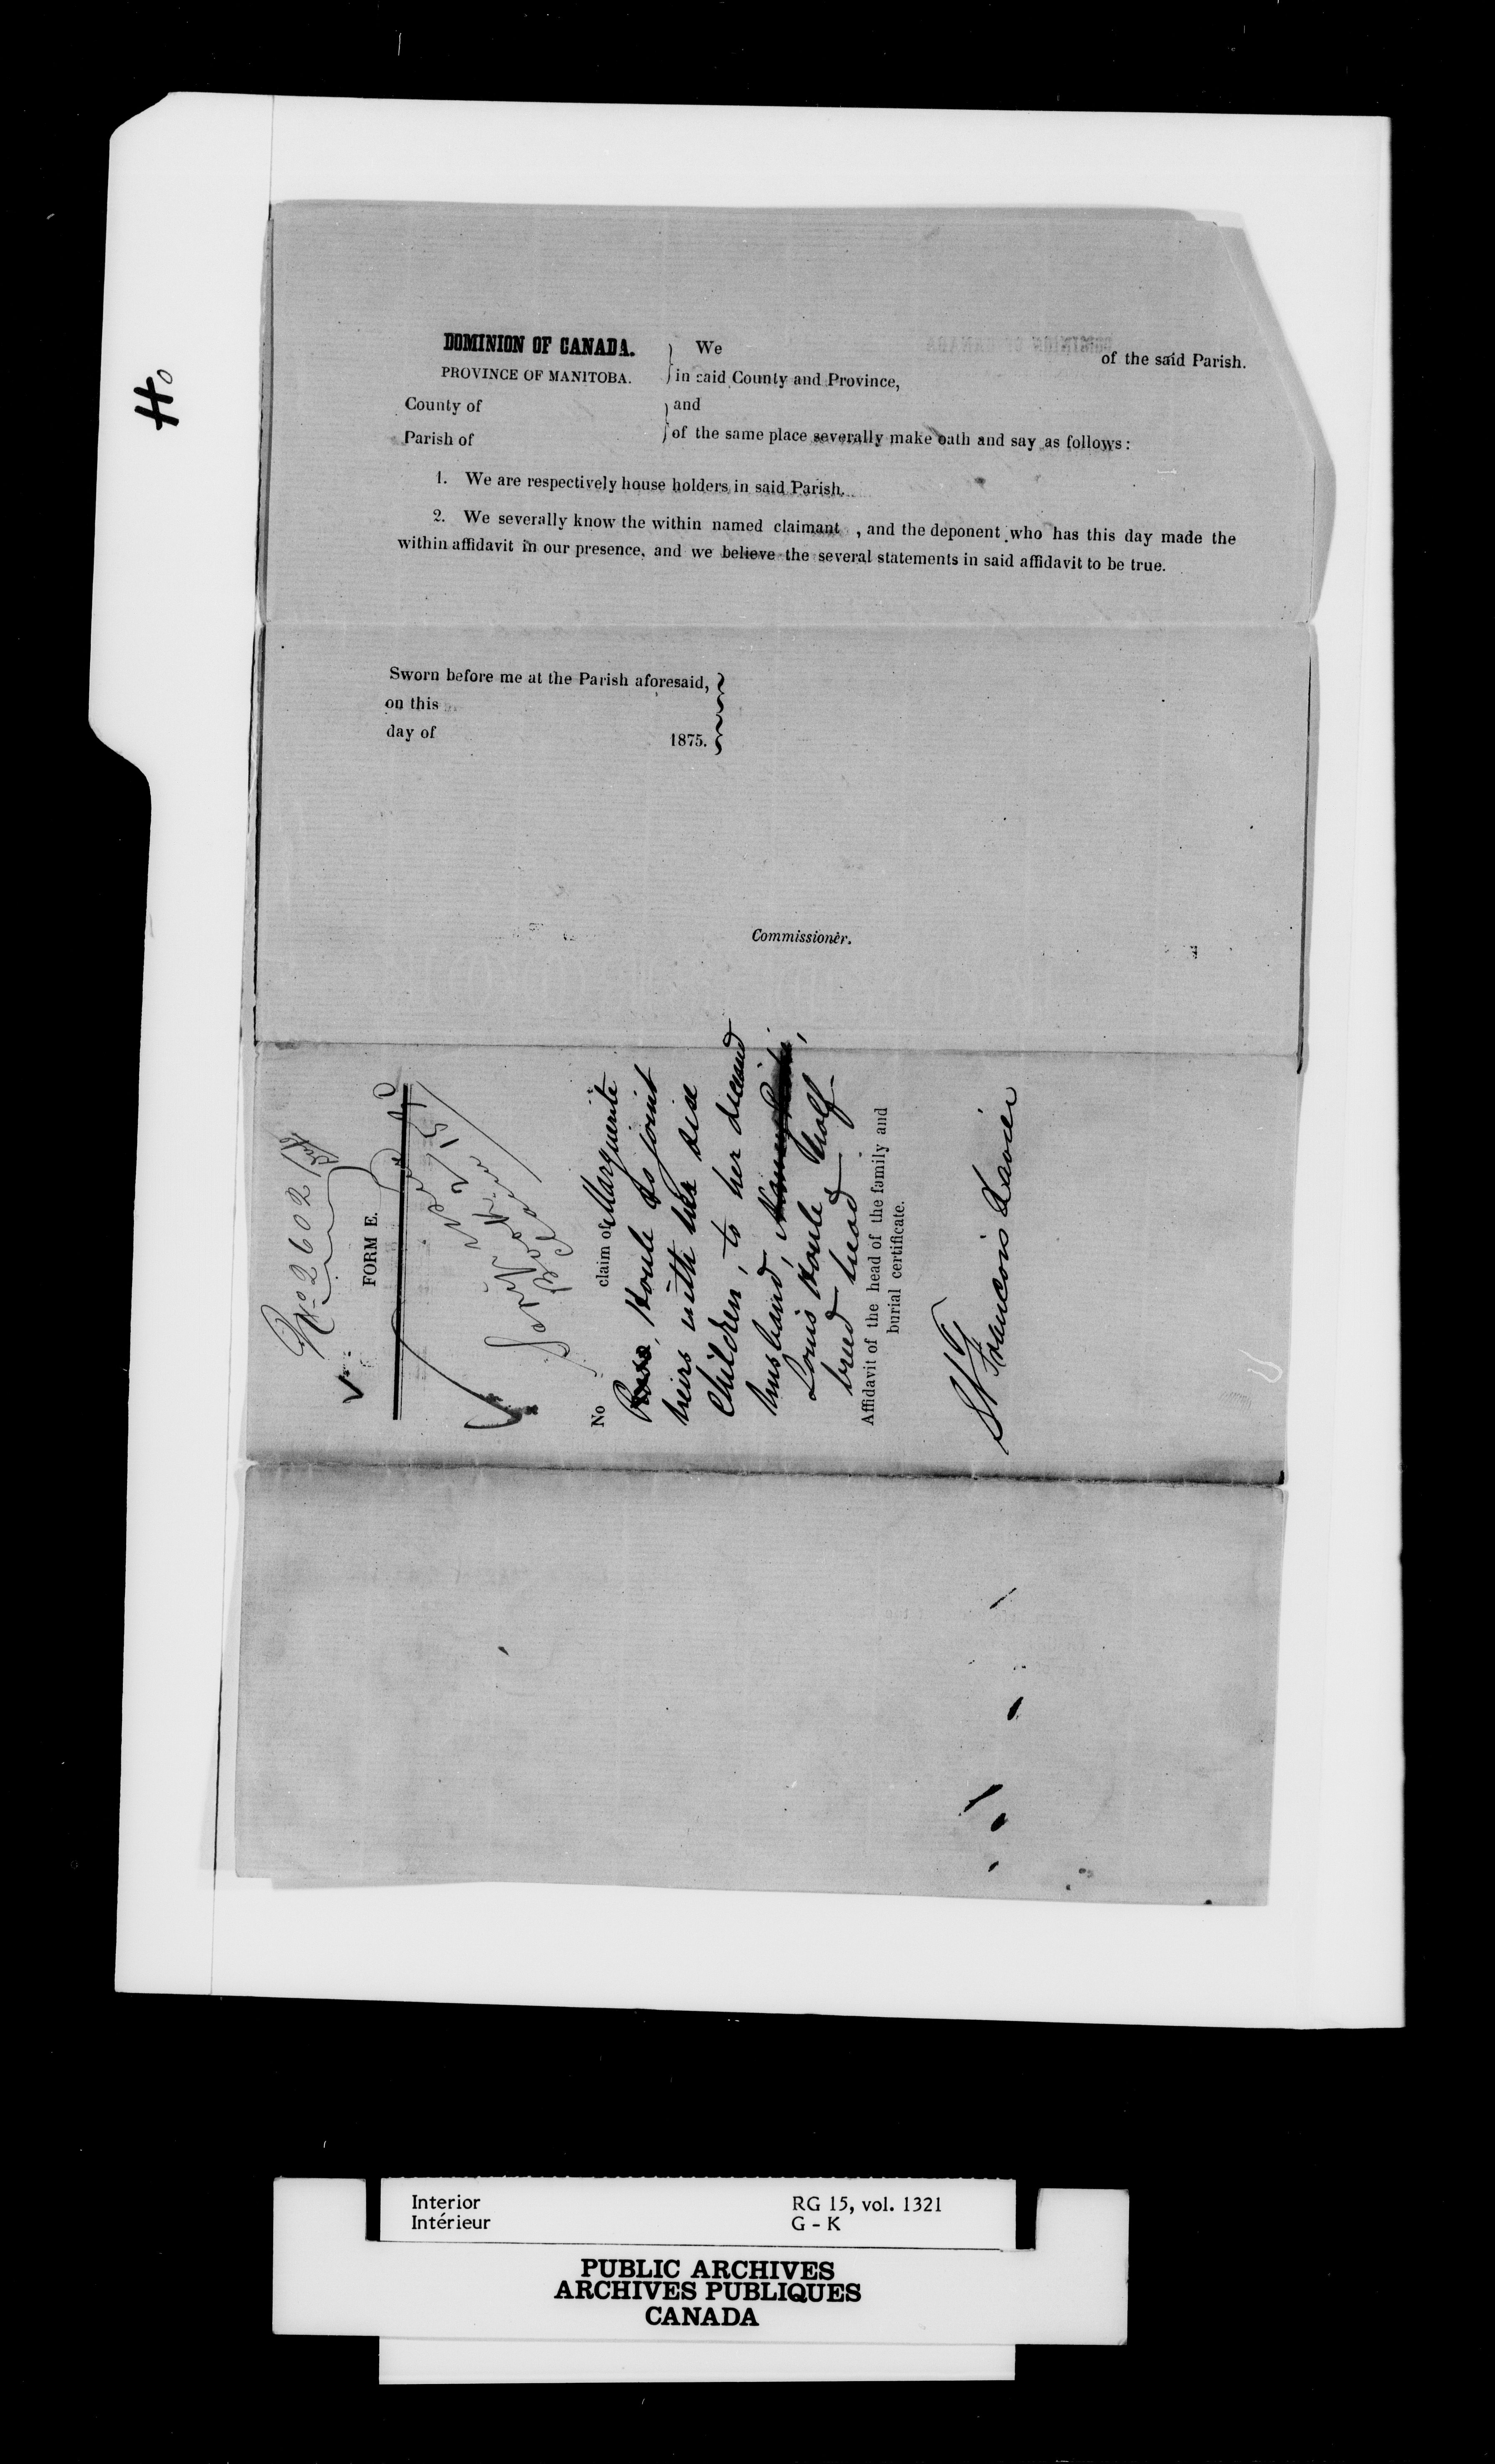 Ho
DOMINION OF CANADA.
PROVINCE OF MANITOBA.
County of
Parish of
We of the said Parish.
in said County and Province,
and
of the same place severally make oath and say as follows:
1. We are respectively house holders in said Parish.
2. We severally know the within named claimant , and the deponent who has this day made the
within affidavit in our presence, and we believe the several statements in said affidavit to be true.
Sworn before me at the Parish aforesaid,
on this
day of 1875.
Commissioner.
No 2602
FORM E.
No claim of Marguerite
Rosa, Houle as joint
heirs with her six
Children, to her deceased
husband,
Louis Houle Half-
breed head
Affidavit of the head of the family and
burial certificate.
St Francois Xavier
Interior
Intérieur
RG 15, vol. 1321
G - K
PUBLIC ARCHIVES
ARCHIVES PUBLIQUES
CANADA